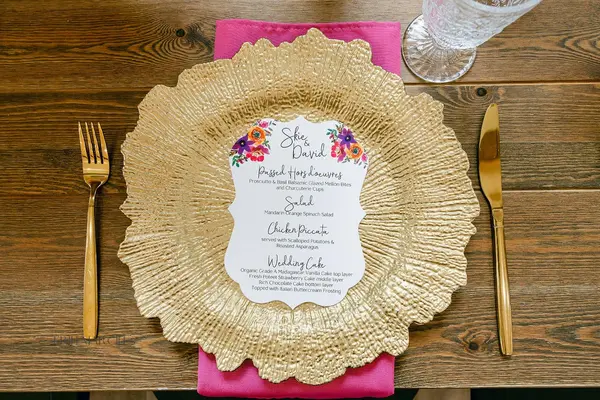 Skie
&
David
Passed Hors d'oeuvres
Prosciutto & Basil Balsamic Glazed Mellon Bites
and Charcuterie Cups
Salad
Mandarin Orange Spinach Salad
Chicken Piccata
served with Scalloped Potatoes &
Roasted Asparagus
Wedding Cake
Organic Grade A Madagascar Vanilla Cake top layer
Fresh Power Strawberry Cake middle layer
Rich Chocolate Cake bottom layer
Topped with Italian Buttercream Frosting